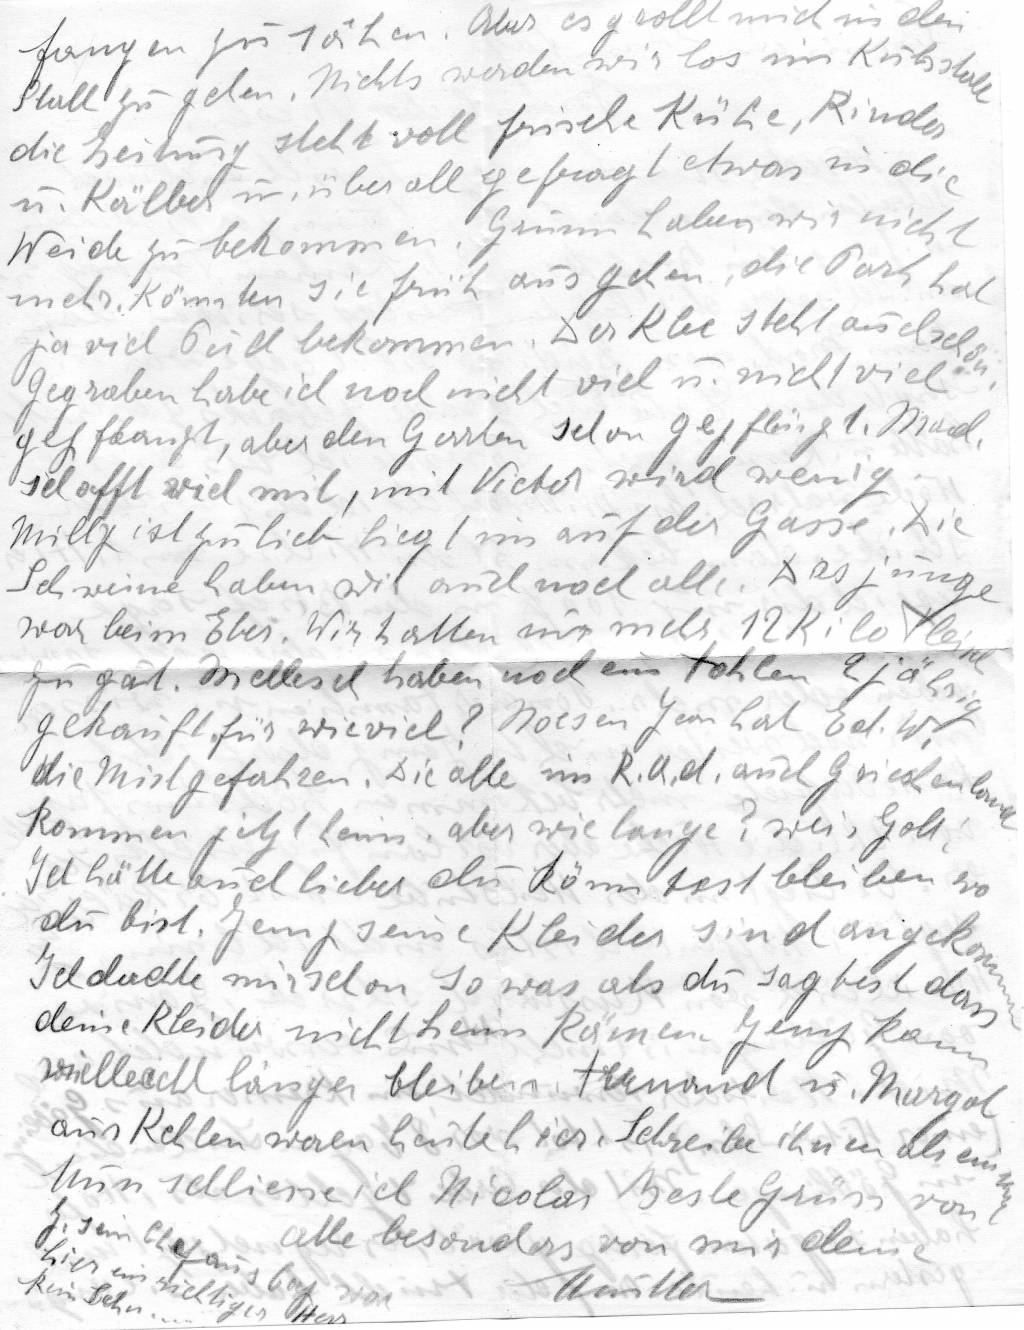 fangen zu sähen. Aber es grollt mich in den
Stall zu gehen. Nichts werden wir los im Kuhstall
die Zeitung steht voll frische Kühe, Rinder
u. Kälber u. überall gefragt etwas in die
Weide zu bekommen. Grünn haben wir nicht
mehr. Könnten sie früh ausgehen, die Park hat
ja viel Pud bekommen. Der Klee steht auch schön.
Gegraben habe ich noch nicht viel u. nicht viel
gepflanzt, aber den Garten schon gepflügt. Mad.
schafft viel mit, mit Victor wird wenig
Milly ist zu lieb liegt im auf der Gasse. Die
Schweine haben wir auch noch alle. Das junge
war beim Eber. Wir hatten nur mehr 12 Kilo Klein
zu gut. Mellesch haben noch ein Fohlen 2 jährig
gekauft, für wieviel? Noesen Jean hat Ed. W.
die Mist gefahren. Die alle im R.A.d. auch Griechenland
kommen jetzt heim. aber wie lange? weis Gott.
Ich hätte auch lieber du könntest bleiben wo
du bist. Jemp seine Kleider sind angekommen
Ich dachte mir schon so was als du sagtest dass
deine Kleider nicht heim kämen. Jemp kann
vielleicht länger bleiben. Fernand u. Margot
aus Kehlen waren heute hier. Schreibe ihnen als einmal
Nun schliesse ich Nicolas Beste Grüss von
alle besonders von mir deine
Mutter
J. sein Chef aus war
hier ein richtiger Herr
kein